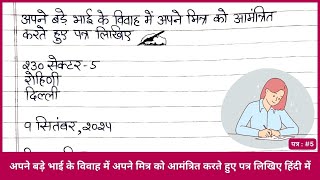 अपने बड़े भाई के विवाह में अपने मित्र को आमंत्रित
करते हुए पत्र लिखिए
२३० सेक्टर-5
रोहिणी
दिल्ली
९ सितंबर, २०२५
पत्र : #5
अपने बड़े भाई के विवाह में अपने मित्र को आमंत्रित करते हुए पत्र लिखिए हिंदी में